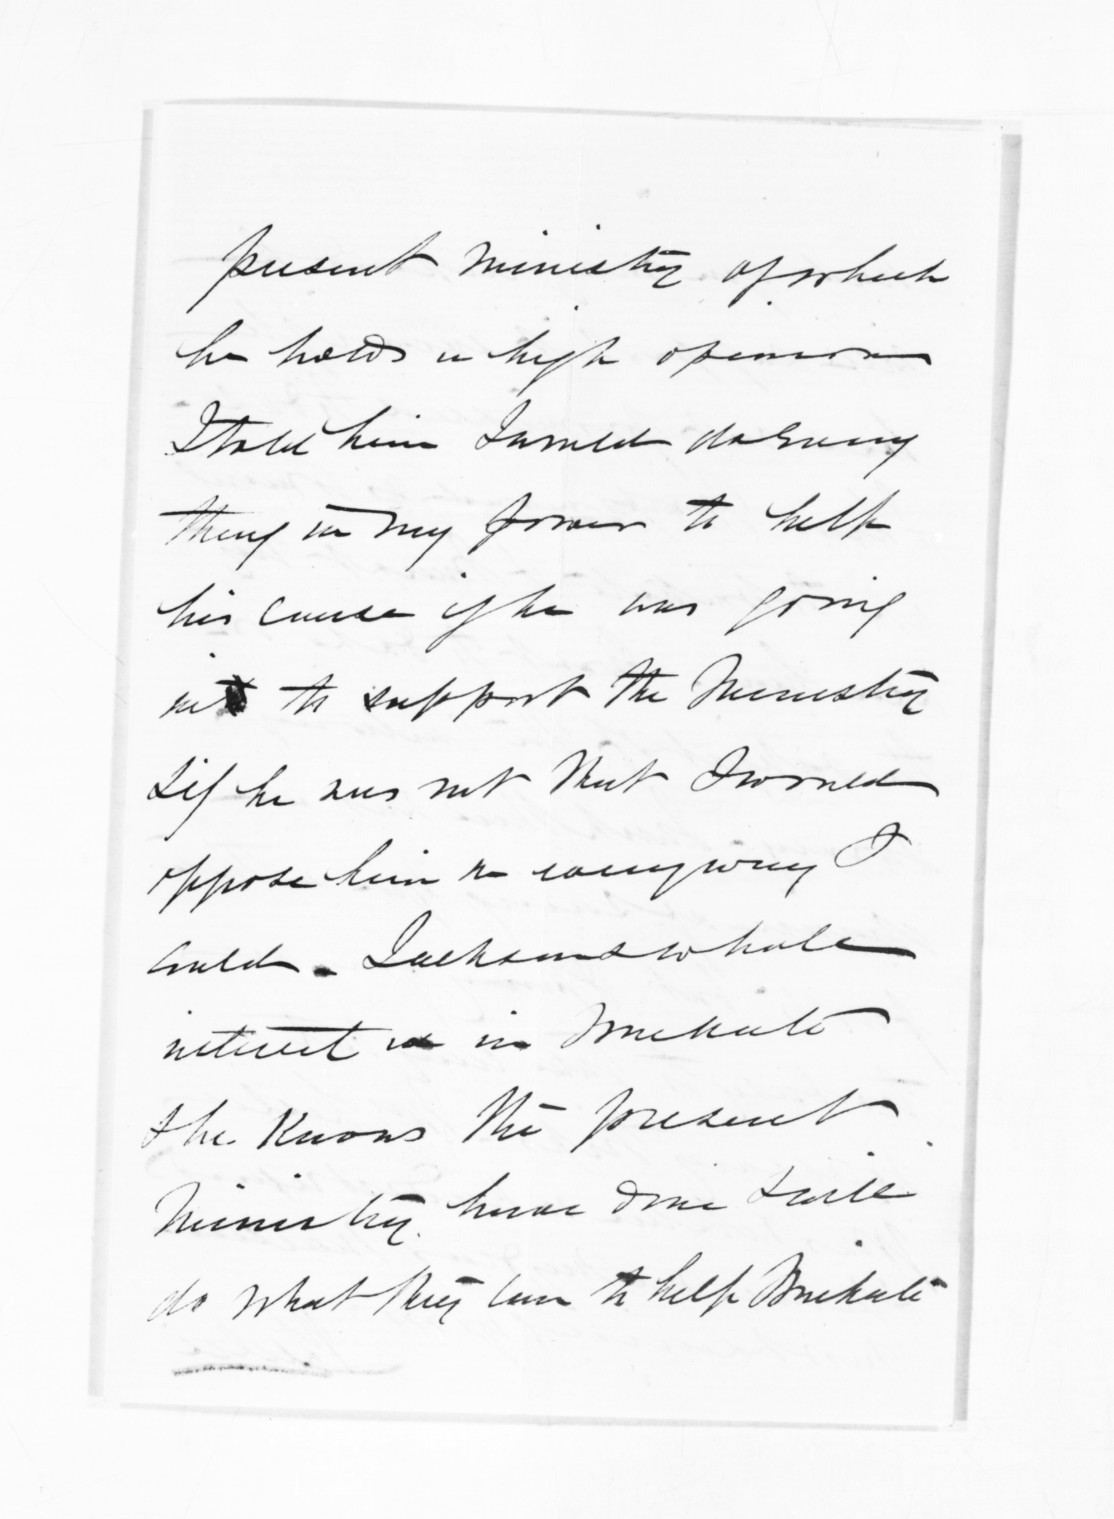 present ministry of which
he holds a high opinion
I told him I would do every
thing in my power to help
his cause if he was going
in to support the Ministry
& if he was not that I would
oppose him in every way I
could. Jacksons whole
interest is in Maketu
& he knows the present
Ministry have done & will
do what they can to help Maketu